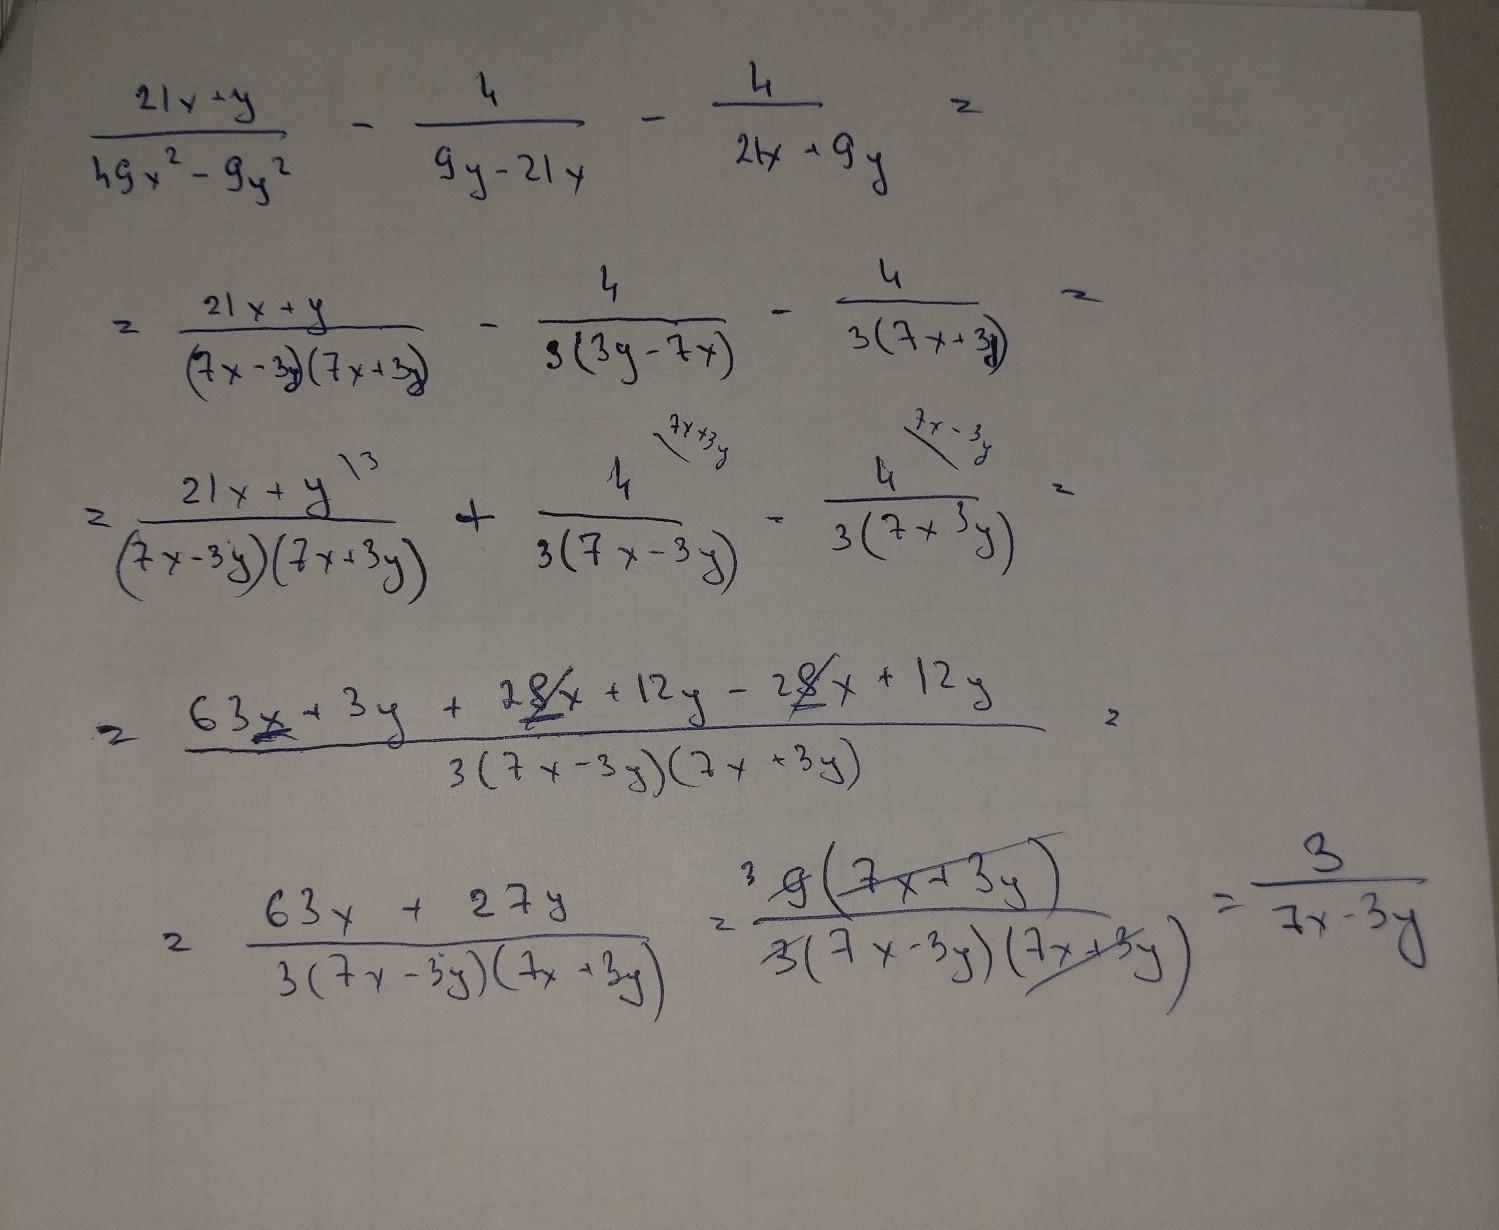 (21x + y)/(49x² - 9y²) - 4/(9y - 21x) - 4/(21x + 9y) =
= (21x + y)/((7x - 3y)(7x + 3y)) - 4/(3(3y - 7x)) - 4/(3(7x + 3y)) =
= (21x + y \3)/((7x - 3y)(7x + 3y)) + (4 \7x + 3y)/(3(7x - 3y)) - (4 \7x - 3y)/(3(7x 3y)) =
= (63x + 3y + 28x + 12y - 28x + 12y)/(3(7x - 3y)(7x + 3y)) =
= (63x + 27y)/(3(7x - 3y)(7x + 3y)) = (3 9(7x + 3y))/(3(7x - 3y)(7x + 3y)) = 3/(7x - 3y)